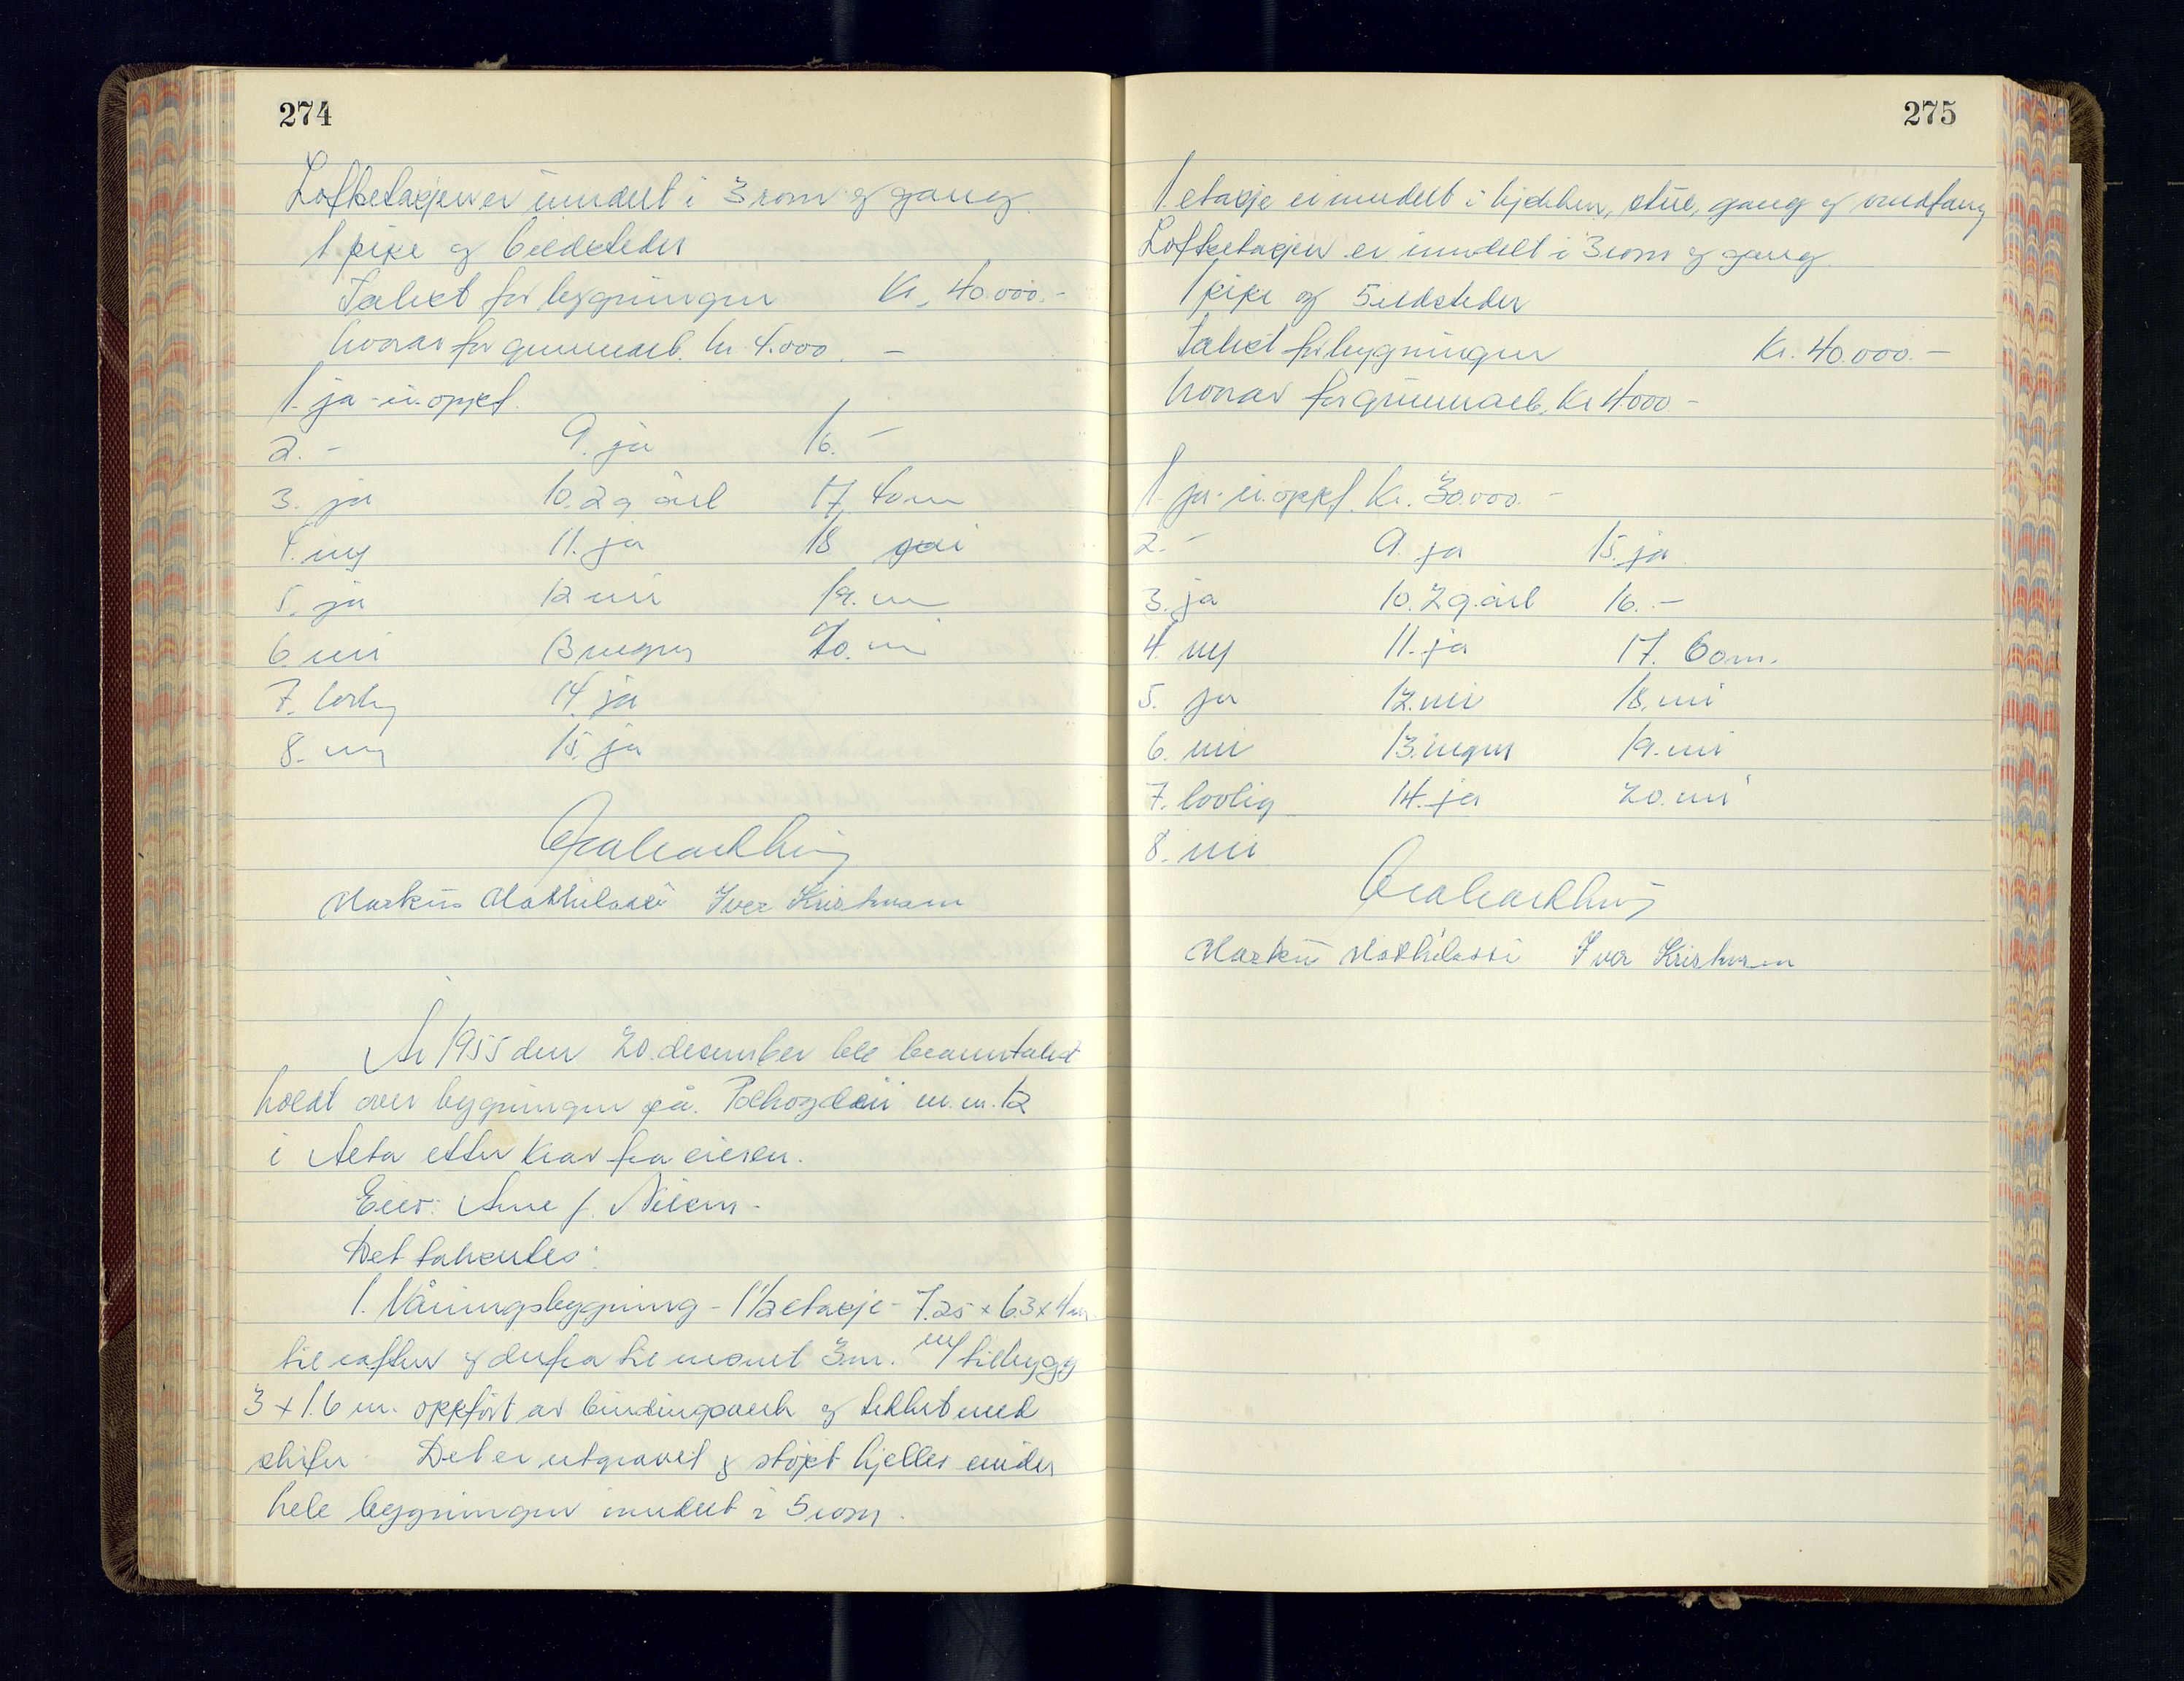 274
Loftsetasjen er inndelt i 3 rom og gang
1 pipe og 6 ildsteder
Takst for bygningen Kr. 40.000.-
hvorav for grunnarb. kr. 4.000. -
1. ja - er. oppf.
2. - 9. ja 16. -
3. ja 10. 2 g årl 17. 4 om
4. ny 11. ja 18 nei
5. ja 12 nei 19. nei
6 nei 13 ingen 20. nei
7. lovlig 14 ja
8. nei 15. ja
Markus Mathilassi Iver Kristensen
År 1955 den 20. desember ble branntakst
holdt over bygningen på m.nr. 12
i Alta etter krav fra eieren.
Eier: Arne J. Nilsen.
Det taksertes:
1. Våningsbygning - 1 1/2 etasje - 7.25 x 6.3 x 4 m.
til raften og derfra til mønet 3 m. m/ tilbygg
3 x 1.6 m. oppført av bindingsverk og tekket med
skifer. Det er utgravet og støpt kjeller under
hele bygningen inndelt i 5 rom.
275
1. etasje er inndelt i kjøkken, stue, gang og vindfang
Loftsetasjen er inndelt i 3 rom og gang
1 pipe og 5 ildsteder
Takst for bygningen Kr. 40.000. -
hvorav for grunnarb. Kr 4.000 -
1. ja - er. oppf. Kr. 30.000. -
2. - 9. ja 15. ja
3. ja 10. 2 g. årl 16. -
4. ny 11. ja 17. 6 om.
5. ja 12. nei 18. nei
6. nei 13. ingen 19. nei
7. lovlig 14. ja 20. nei
8. nei
Markus Mathilassi Iver Kristensen